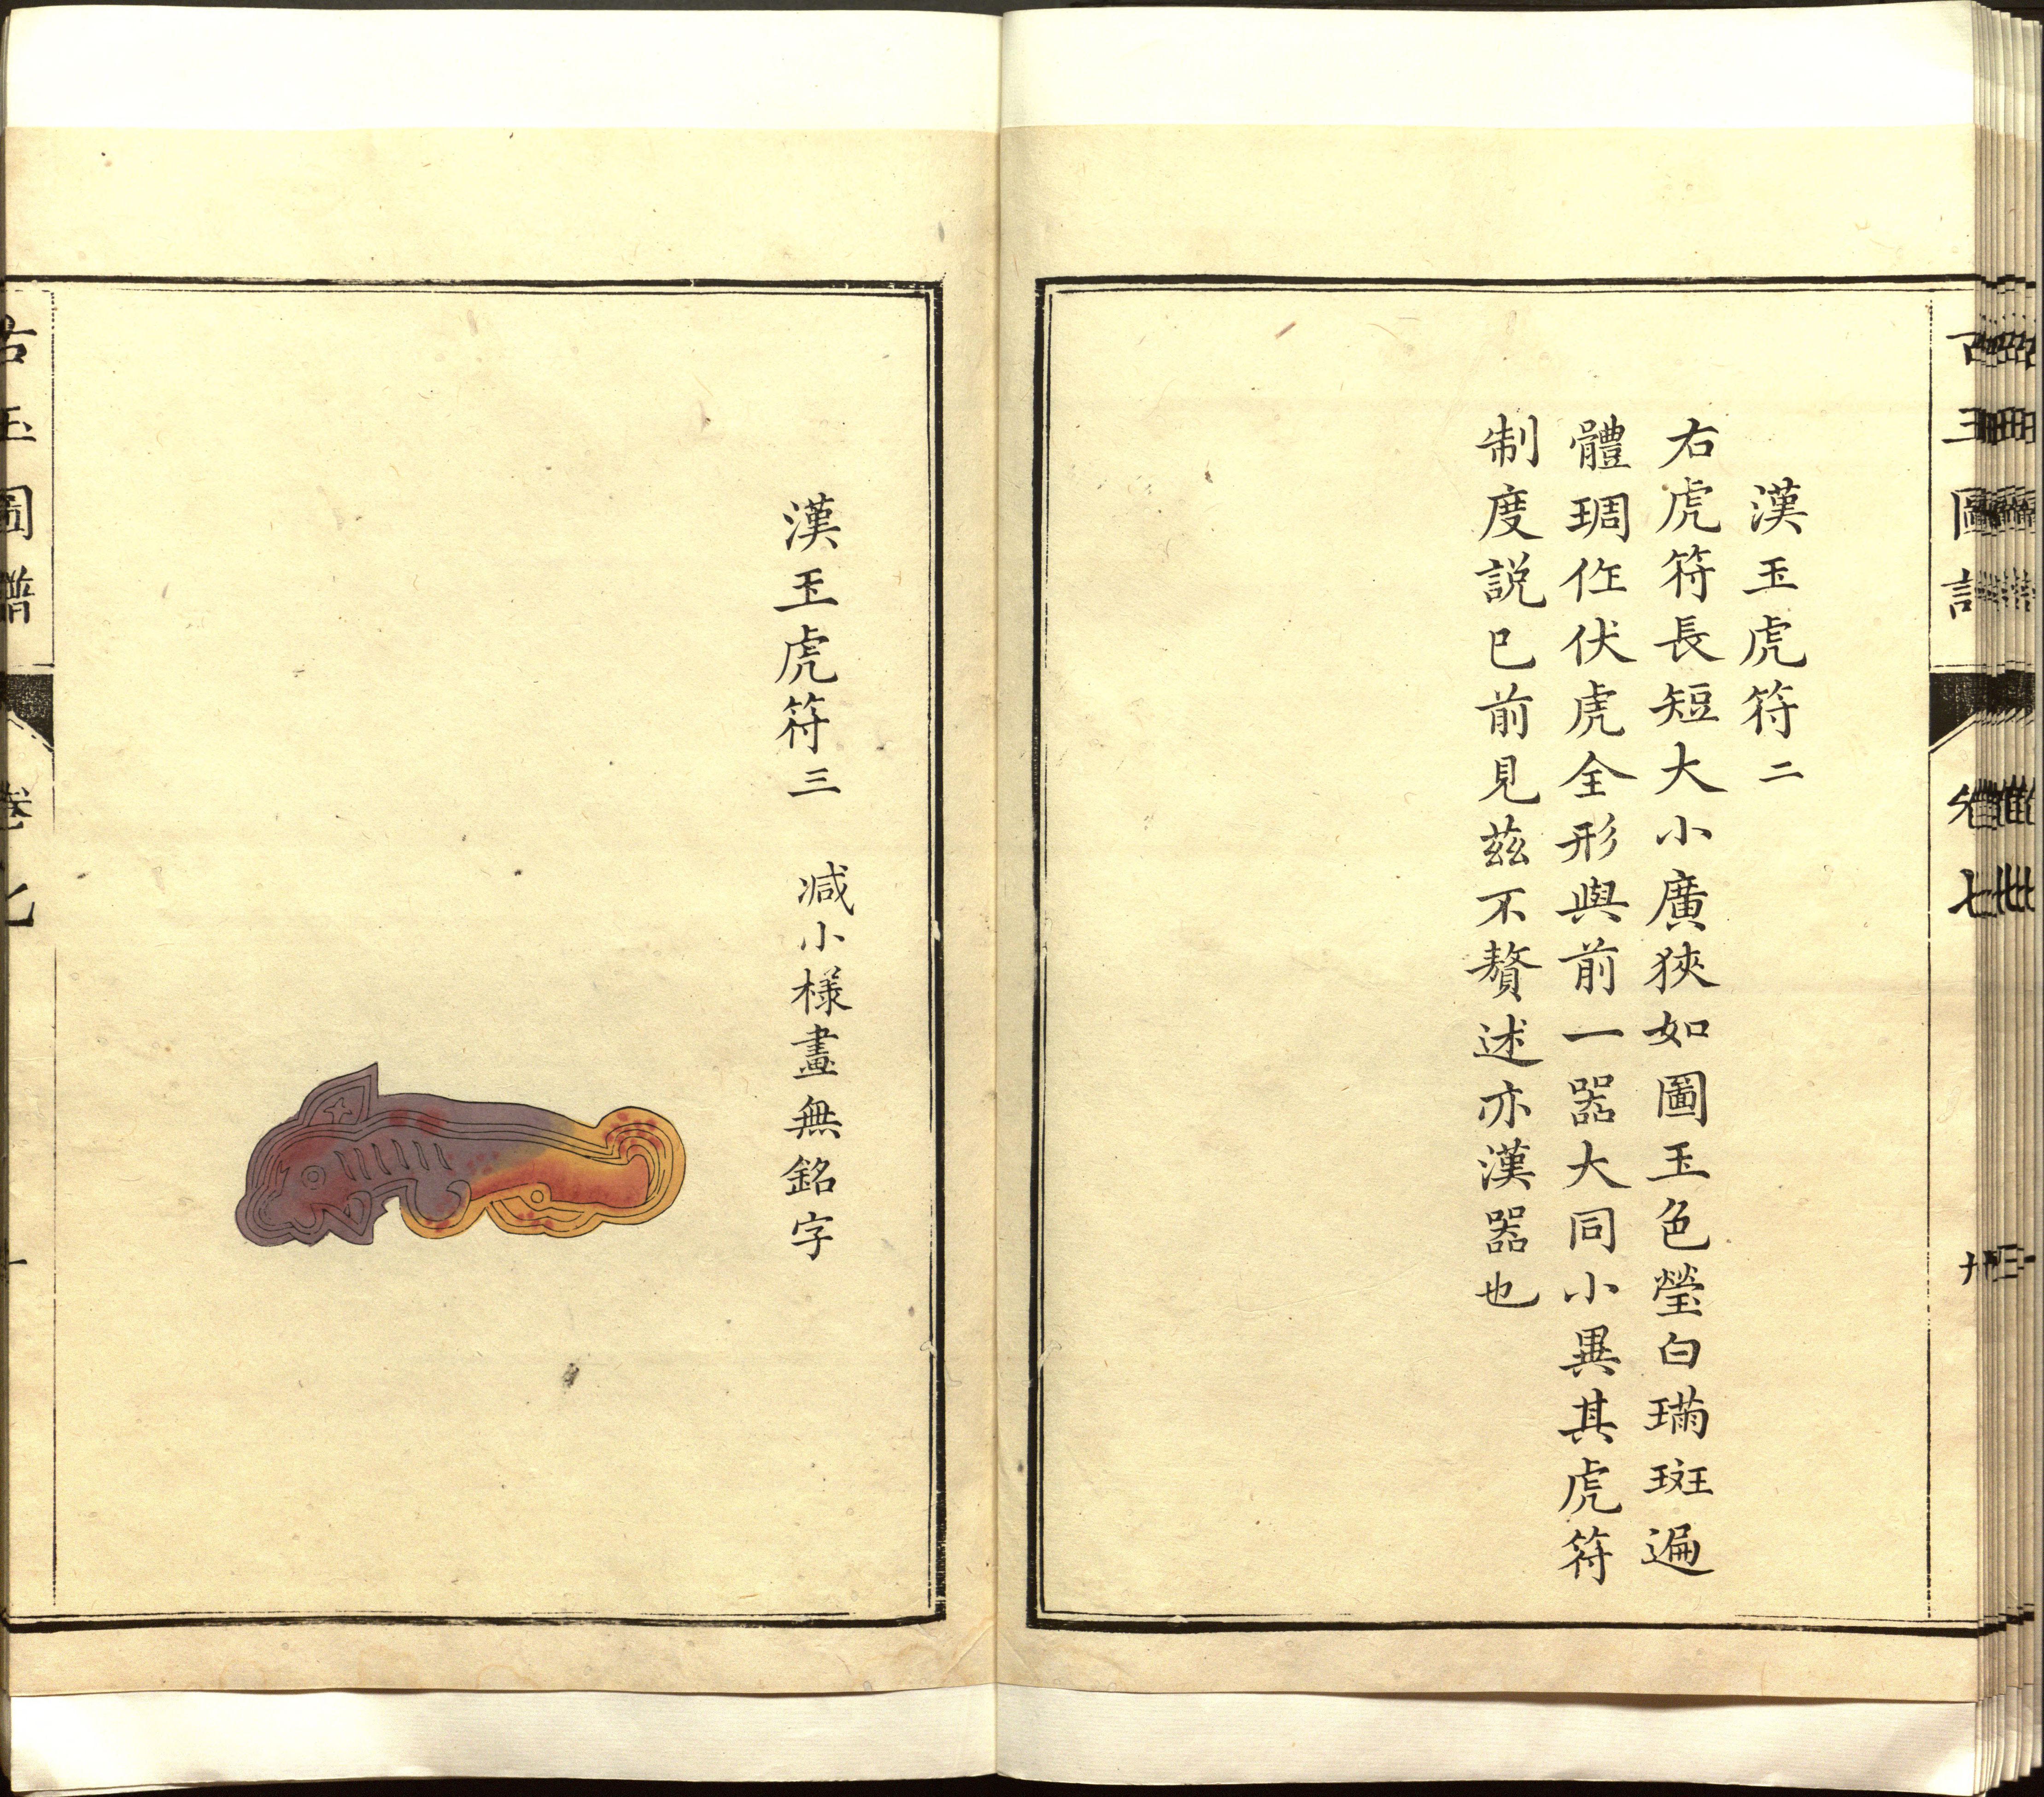 漢玉虎符二
右虎符長短大小廣狹如圖玉色瑩白璊斑遍
體琱作伏虎全形與前一器大同小異其虎符
制度説已前見茲不贅述亦漢器也
漢玉虎符三 减小樣畫無銘字
古玉圖譜 卷七